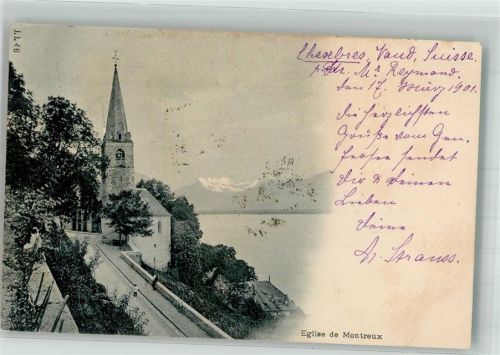 J.J. 46
Chexbres, Vaud, Suisse.
p. Adr. Mr Reymond.
den 17. März 1901.
die herzlichsten
Grüße vom Gen-
fersee sendet
dir & deinen
Lieben
deine
Strauss.
Eglise de Montreux